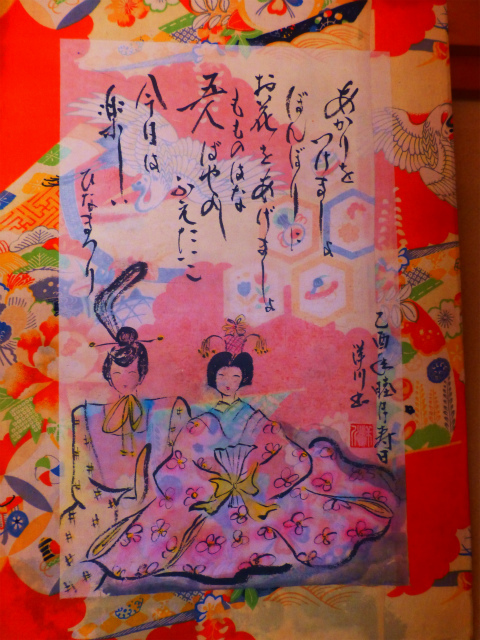 あかりを
つけましょ
ぼんぼりに
お花をあげましょ
もものはな
五人ばやしの
ふえたいこ
今日は
楽しい
ひなまつり
乙酉年睦月寿日